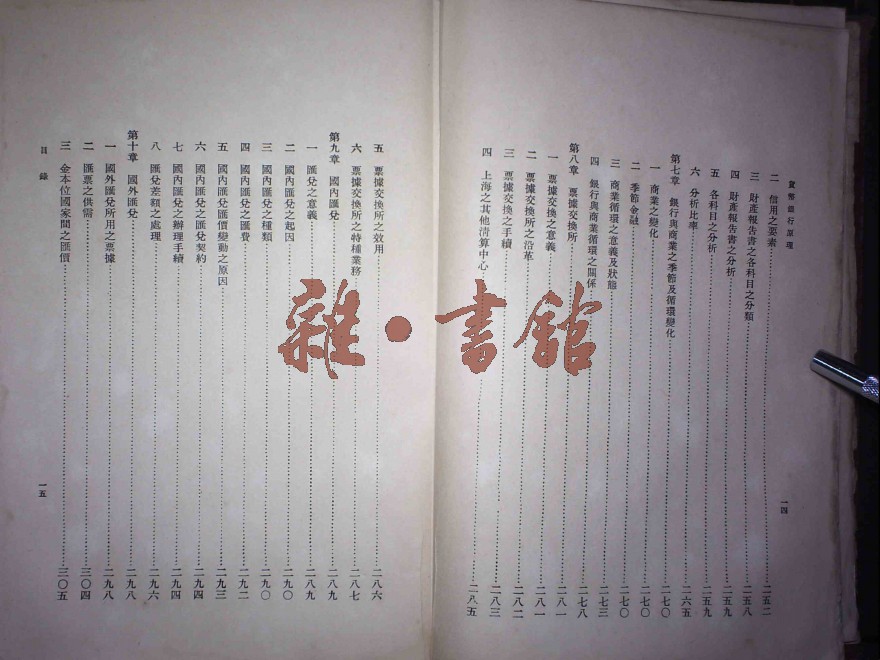 貨幣銀行原理
二 信用之要素 二五二
三 財產報告書之各科目之分類 二五八
四 財產報告書之分析 二五九
五 各科目之分析 二五九
六 分析比率 二六五
第七章 銀行與商業之季節及循環變化 二七〇
一 商業之變化 二七〇
二 季節金融 二七〇
三 商業循環之意義及狀態 二七三
四 銀行與商業循環之關係 二七八
第八章 票據交換所 二八一
一 票據交換之意義 二八一
二 票據交換所之沿革 二八二
三 票據交換之手續 二八三
四 上海之其他清算中心 二八五
一四
五 票據交換所之效用 二八六
六 票據交換所之特種業務 二八七
第九章 國內匯兌 二八九
一 匯兌之意義 二八九
二 國內匯兌之起因 二九〇
三 國內匯兌之種類 二九〇
四 國內匯兌之匯費 二九二
五 國內匯兌匯價變動之原因 二九三
六 國內匯兌之匯兌契約 二九四
七 國內匯兌之辦理手續 二九四
八 匯兌差額之處理 二九六
第十章 國外匯兌 二九八
一 國外匯兌所用之票據 二九八
二 匯票之供需 三〇四
三 金本位國家間之匯價 三〇五
目錄
一五
雜·書館